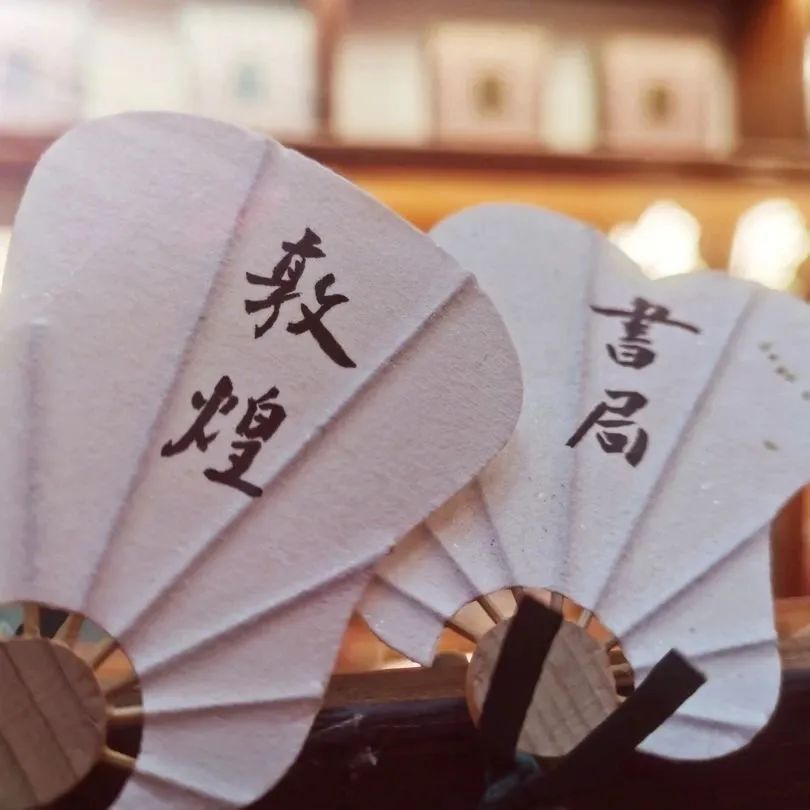 敦煌
書局